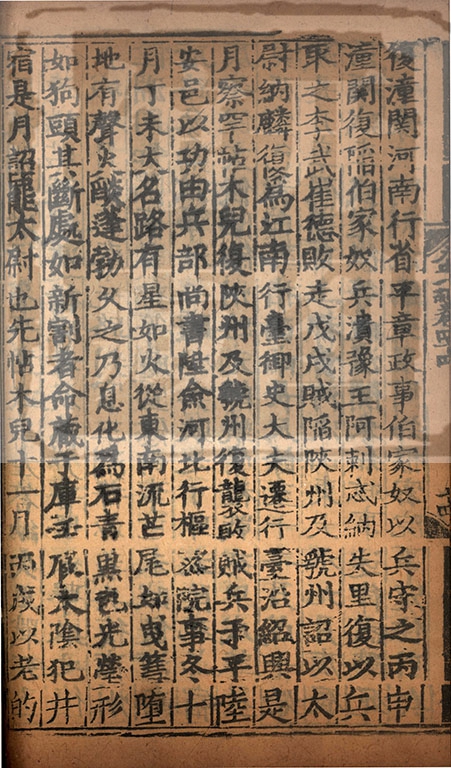 復潼關河南行省平章政事伯家奴以兵守之丙申
潼關復陷伯家奴兵潰豫王阿剌忒納失里復以兵
取之李武崔德敗走戊戌賊陷陝州及虢州詔以太
尉納麟復爲江南行臺御史大夫遷行臺治紹興是
月察罕帖木兒復陝州及虢州復襲敗賊兵于平陸
安邑以功由兵部尚書陞僉河北行樞密院事冬十
月丁未大名路有星如火從東南流芒尾如曳篲墮
地有聲火燄蓬勃久之乃息化爲石青黑色光瑩形
如狗頭其斷處如新割者命藏于庫壬戌太陰犯井
宿是月詔罷太尉也先帖木兒十一月丙戌以老的